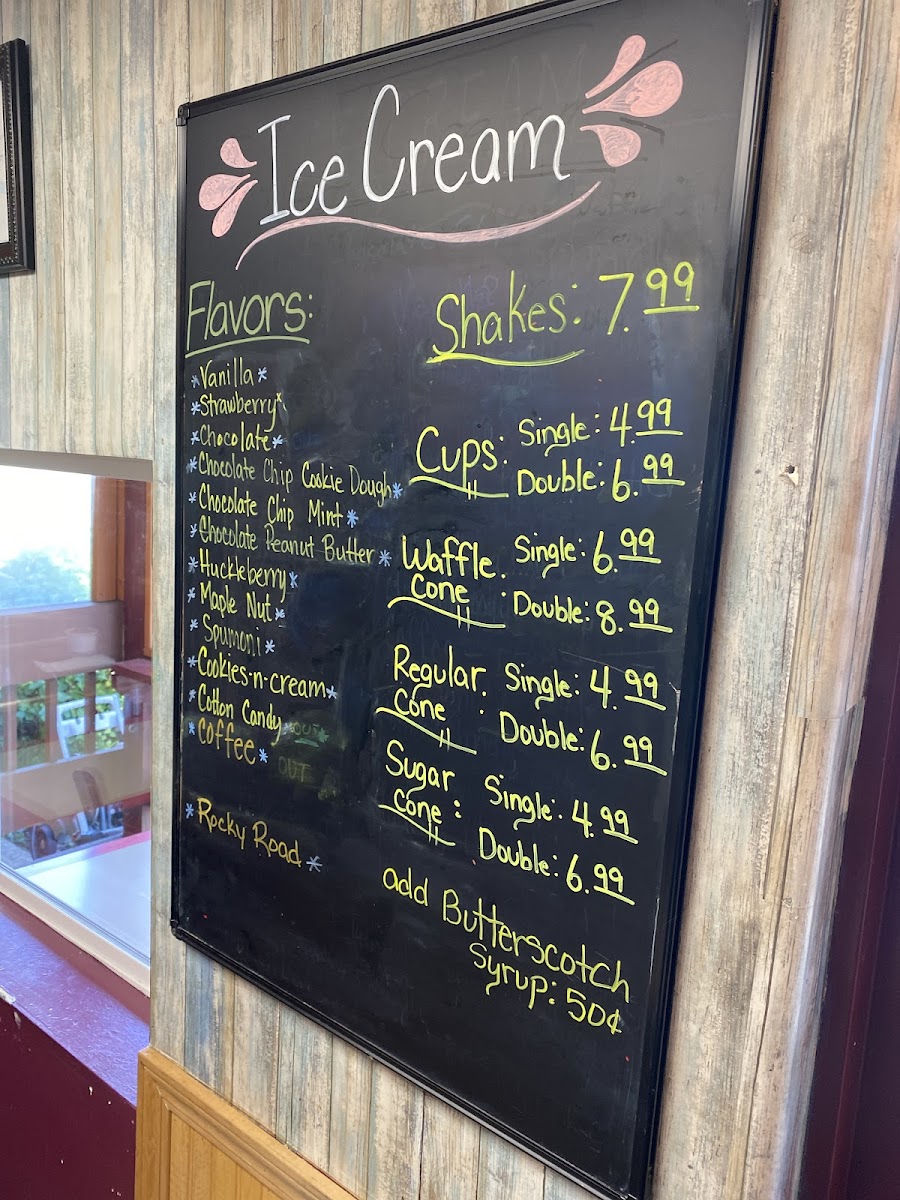 Ice Cream
Flavors:
*Vanilla*
*Strawberry*
*Chocolate*
*Chocolate Chip Cookie Dough*
*Chocolate Chip Mint*
*Chocolate Peanut Butter*
*Huckleberry*
*Maple Nut*
*Spumoni*
*Cookies-n-cream*
*Cotton Candy* OUT
*coffee* OUT
*Rocky Road*
Shakes: 7.99
Cups: Single: 4.99
Double: 6.99
Waffle Cone: Single: 6.99
Double: 8.99
Regular Cone: Single: 4.99
Double: 6.99
Sugar Cone: Single: 4.99
Double: 6.99
add Butterscotch
Syrup: 50¢